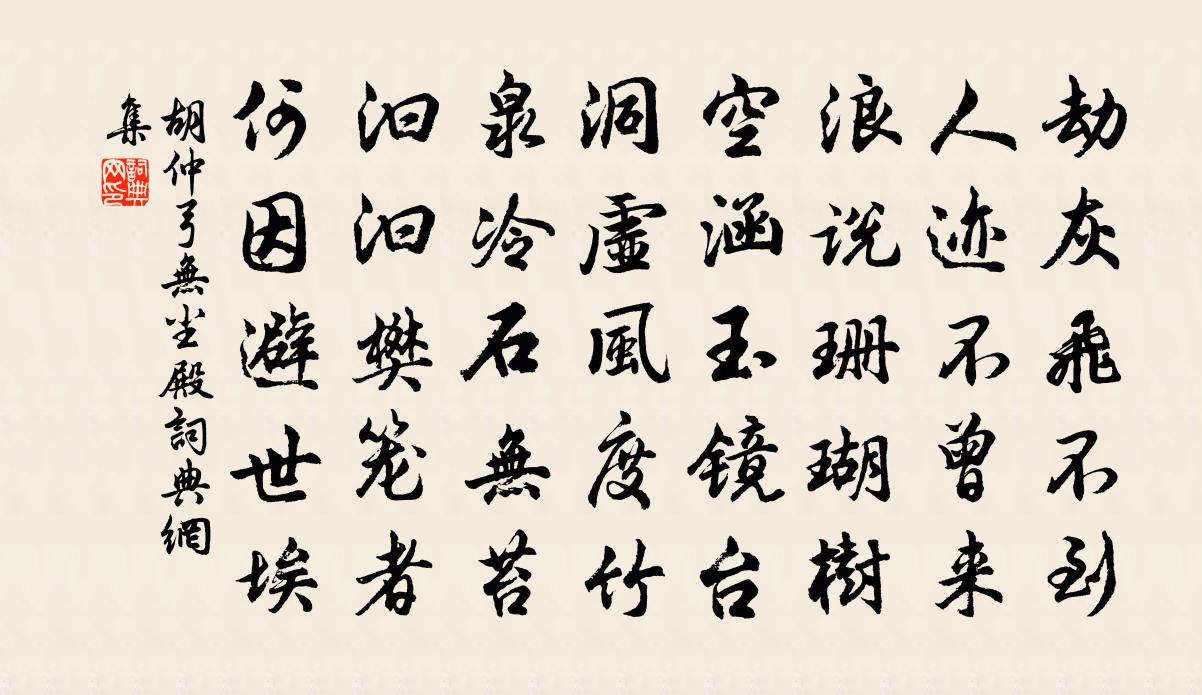 劫灰飛不到
人迹不曾来
浪说珊瑚樹
空涵玉镜台
洞虛風度竹
泉冷石無苔
汩汩樊笼者
何因避世埃
胡仲弓無尘殿詞典網
集
詞典
网印